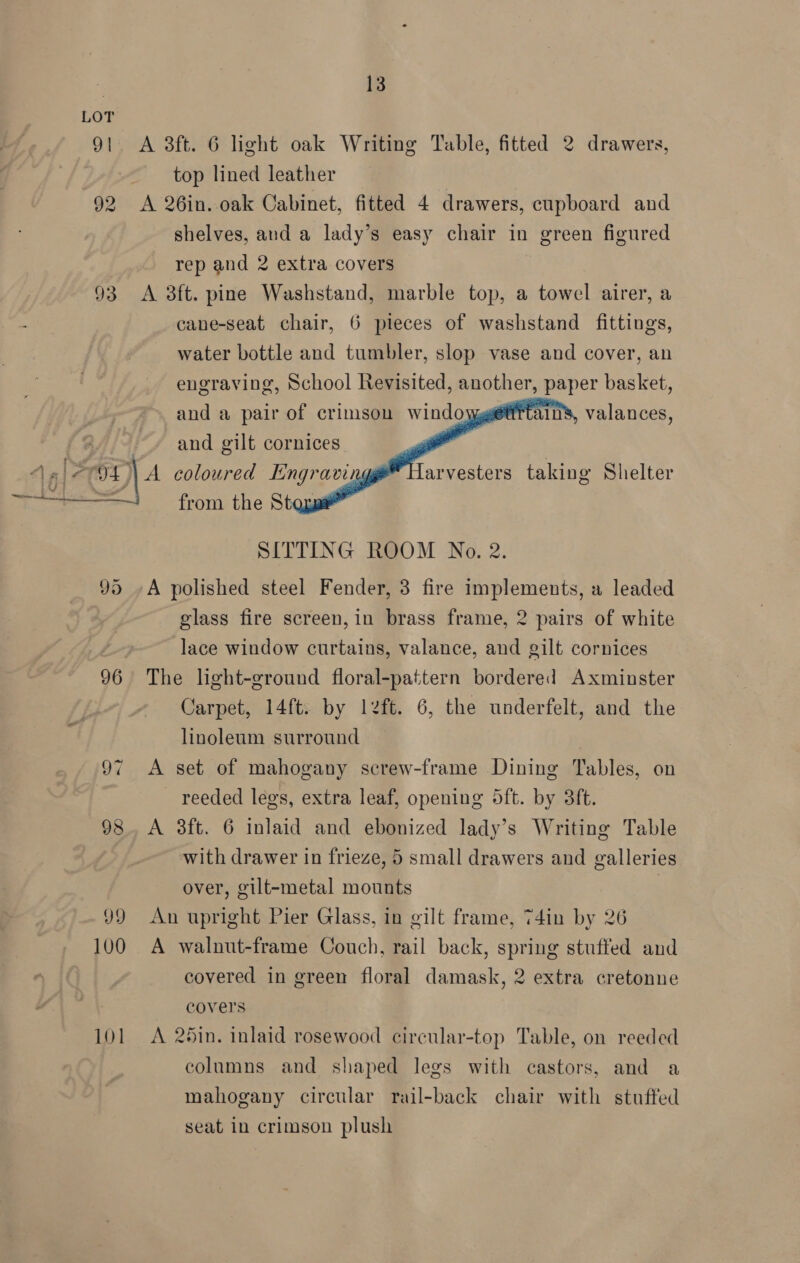 13
LOT
91 A 3ft. 6 light oak Writing Table, fitted 2 drawers,
top lined leather
92 A 26in. oak Cabinet, fitted 4 drawers, cupboard and
shelves, and a lady's easy chair in green figured
rep and 2 extra covers
93 A 3ft. pine Washstand, marble top, a towel airer, a
cane-seat chair, 6 pieces of washstand fittings,
water bottle and tumbler, slop vase and cover, an
engraving, School Revisited, another, paper basket,
and a pair of crimson window valances,
and gilt cornices
94 A coloured Engraving Harvesters taking Shelter
from the
SITTING ROOM No. 2.
95 A polished steel Fender, 3 fire implements, a leaded
glass fire screen, in brass frame, 2 pairs of white
lace window curtains, valance, and gilt cornices
96 The light-ground floral-pattern bordered Axminster
Carpet, 14ft. by 12ft. 6, the underfelt, and the
linoleum surround
97 A set of mahogany screw-frame Dining Tables, on
reeded legs, extra leaf, opening 5ft. by 3ft.
98 A 3ft. 6 inlaid and ebonized lady's Writing Table
with drawer in frieze, 5 small drawers and galleries
over, gilt-metal mounts
99 An upright Pier Glass, in gilt frame, 74in by 26
100 A walnut-frame Couch, rail back, spring stuffed and
covered in green floral damask, 2 extra cretonne
covers
101 A 25in. inlaid rosewood circular-top Table, on reeded
columns and shaped legs with castors, and a
mahogany circular rail-back chair with stuffed
seat in crimson plush